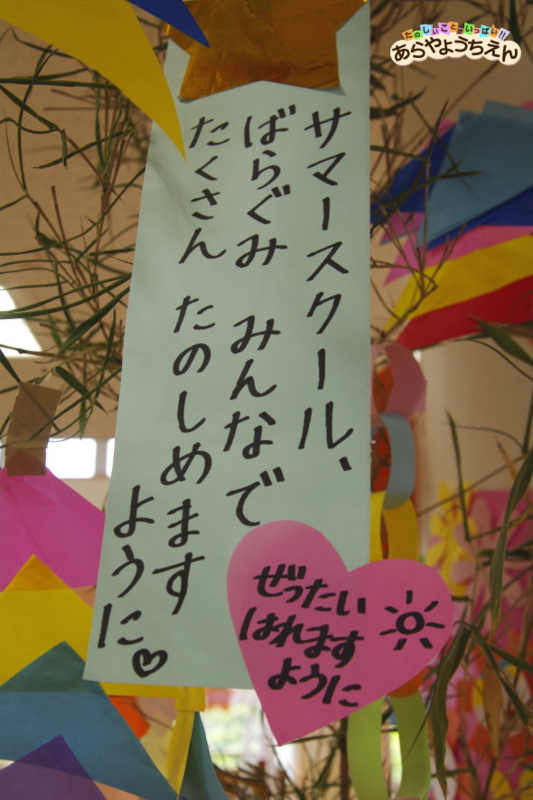 たのしいことがいっぱい!!
あらやようちえん
サマースクール、
ばらぐみ みんなで
たくさん たのしめます
ように♡
ぜったい
はれます
ように